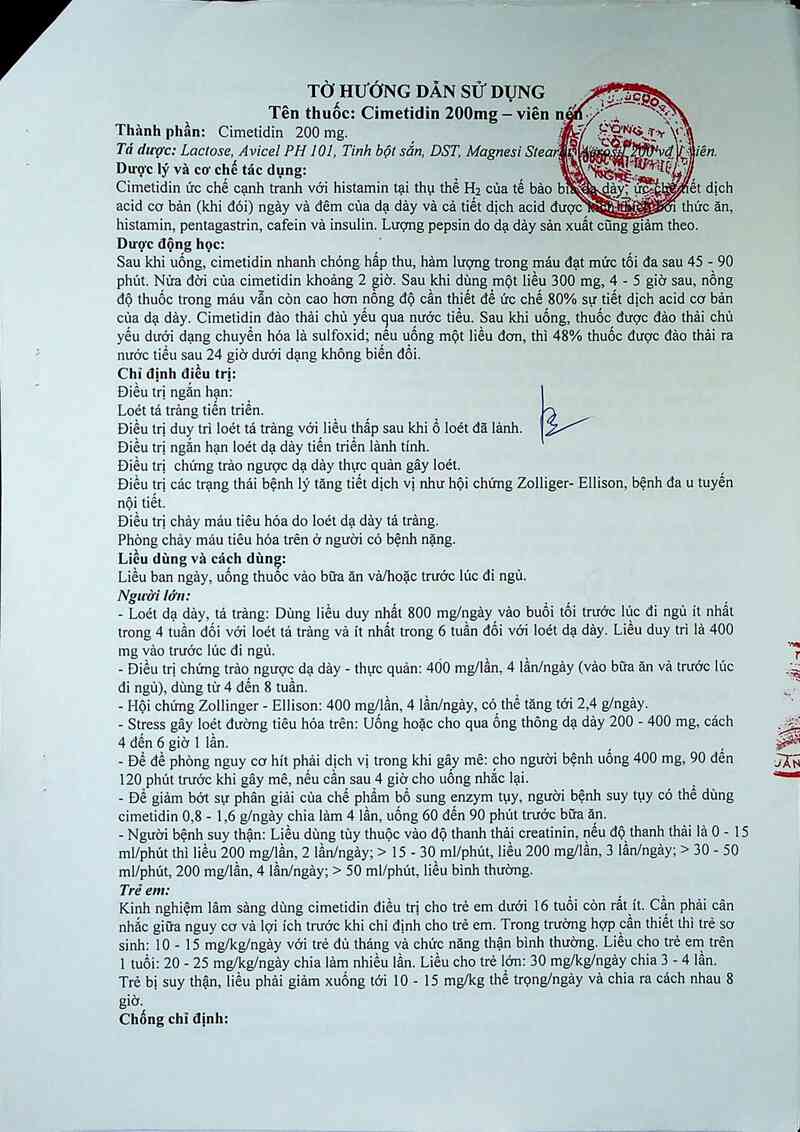 TỜ HƯỚNG DẪN SỬ DỤNG
Tên thuốc: Cimetidin 200mg – viên nén
Thành phần: Cimetidin 200 mg.
Tá dược: Lactose, Avicel PH 101, Tinh bột sắn, DST, Magnesi Stearat, Aerosil 200 vđ 1 viên.
Dược lý và cơ chế tác dụng:
Cimetidin ức chế cạnh tranh với histamin tại thụ thể H₂ của tế bào bìa dạ dày, ức chế tiết dịch
acid cơ bản (khi đói) ngày và đêm của dạ dày và cả tiết dịch acid được kích thích bởi thức ăn,
histamin, pentagastrin, cafein và insulin. Lượng pepsin do dạ dày sản xuất cũng giảm theo.
Dược động học:
Sau khi uống, cimetidin nhanh chóng hấp thu, hàm lượng trong máu đạt mức tối đa sau 45 - 90
phút. Nửa đời của cimetidin khoảng 2 giờ. Sau khi dùng một liều 300 mg, 4 - 5 giờ sau, nồng
độ thuốc trong máu vẫn còn cao hơn nồng độ cần thiết để ức chế 80% sự tiết dịch acid cơ bản
của dạ dày. Cimetidin đào thải chủ yếu qua nước tiểu. Sau khi uống, thuốc được đào thải chủ
yếu dưới dạng chuyển hóa là sulfoxid; nếu uống một liều đơn, thì 48% thuốc được đào thải ra
nước tiểu sau 24 giờ dưới dạng không biến đổi.
Chỉ định điều trị:
Điều trị ngắn hạn:
Loét tá tràng tiến triển.
Điều trị duy trì loét tá tràng với liều thấp sau khi ổ loét đã lành.
Điều trị ngắn hạn loét dạ dày tiến triển lành tính.
Điều trị chứng trào ngược dạ dày thực quản gây loét.
Điều trị các trạng thái bệnh lý tăng tiết dịch vị như hội chứng Zolliger- Ellison, bệnh đa u tuyến
nội tiết.
Điều trị chảy máu tiêu hóa do loét dạ dày tá tràng.
Phòng chảy máu tiêu hóa trên ở người có bệnh nặng.
Liều dùng và cách dùng:
Liều ban ngày, uống thuốc vào bữa ăn và/hoặc trước lúc đi ngủ.
Người lớn:
- Loét dạ dày, tá tràng: Dùng liều duy nhất 800 mg/ngày vào buổi tối trước lúc đi ngủ ít nhất
trong 4 tuần đối với loét tá tràng và ít nhất trong 6 tuần đối với loét dạ dày. Liều duy trì là 400
mg vào trước lúc đi ngủ.
- Điều trị chứng trào ngược dạ dày - thực quản: 400 mg/lần, 4 lần/ngày (vào bữa ăn và trước lúc
đi ngủ), dùng từ 4 đến 8 tuần.
- Hội chứng Zollinger - Ellison: 400 mg/lần, 4 lần/ngày, có thể tăng tới 2,4 g/ngày.
- Stress gây loét đường tiêu hóa trên: Uống hoặc cho qua ống thông dạ dày 200 - 400 mg, cách
4 đến 6 giờ 1 lần.
- Để đề phòng nguy cơ hít phải dịch vị trong khi gây mê: cho người bệnh uống 400 mg, 90 đến
120 phút trước khi gây mê, nếu cần sau 4 giờ cho uống nhắc lại.
- Để giảm bớt sự phân giải của chế phẩm bổ sung enzym tụy, người bệnh suy tụy có thể dùng
cimetidin 0,8 - 1,6 g/ngày chia làm 4 lần, uống 60 đến 90 phút trước bữa ăn.
- Người bệnh suy thận: Liều dùng tùy thuộc vào độ thanh thải creatinin, nếu độ thanh thải là 0 - 15
ml/phút thì liều 200 mg/lần, 2 lần/ngày; > 15 - 30 ml/phút, liều 200 mg/lần, 3 lần/ngày; > 30 - 50
ml/phút, 200 mg/lần, 4 lần/ngày; > 50 ml/phút, liều bình thường.
Trẻ em:
Kinh nghiệm lâm sàng dùng cimetidin điều trị cho trẻ em dưới 16 tuổi còn rất ít. Cần phải cân
nhắc giữa nguy cơ và lợi ích trước khi chỉ định cho trẻ em. Trong trường hợp cần thiết thì trẻ sơ
sinh: 10 - 15 mg/kg/ngày với trẻ đủ tháng và chức năng thận bình thường. Liều cho trẻ em trên
1 tuổi: 20 - 25 mg/kg/ngày chia làm nhiều lần. Liều cho trẻ lớn: 30 mg/kg/ngày chia 3 - 4 lần.
Trẻ bị suy thận, liều phải giảm xuống tới 10 - 15 mg/kg thể trọng/ngày và chia ra cách nhau 8
giờ.
Chống chỉ định:
CÔNG TY
CỔ PHẦN